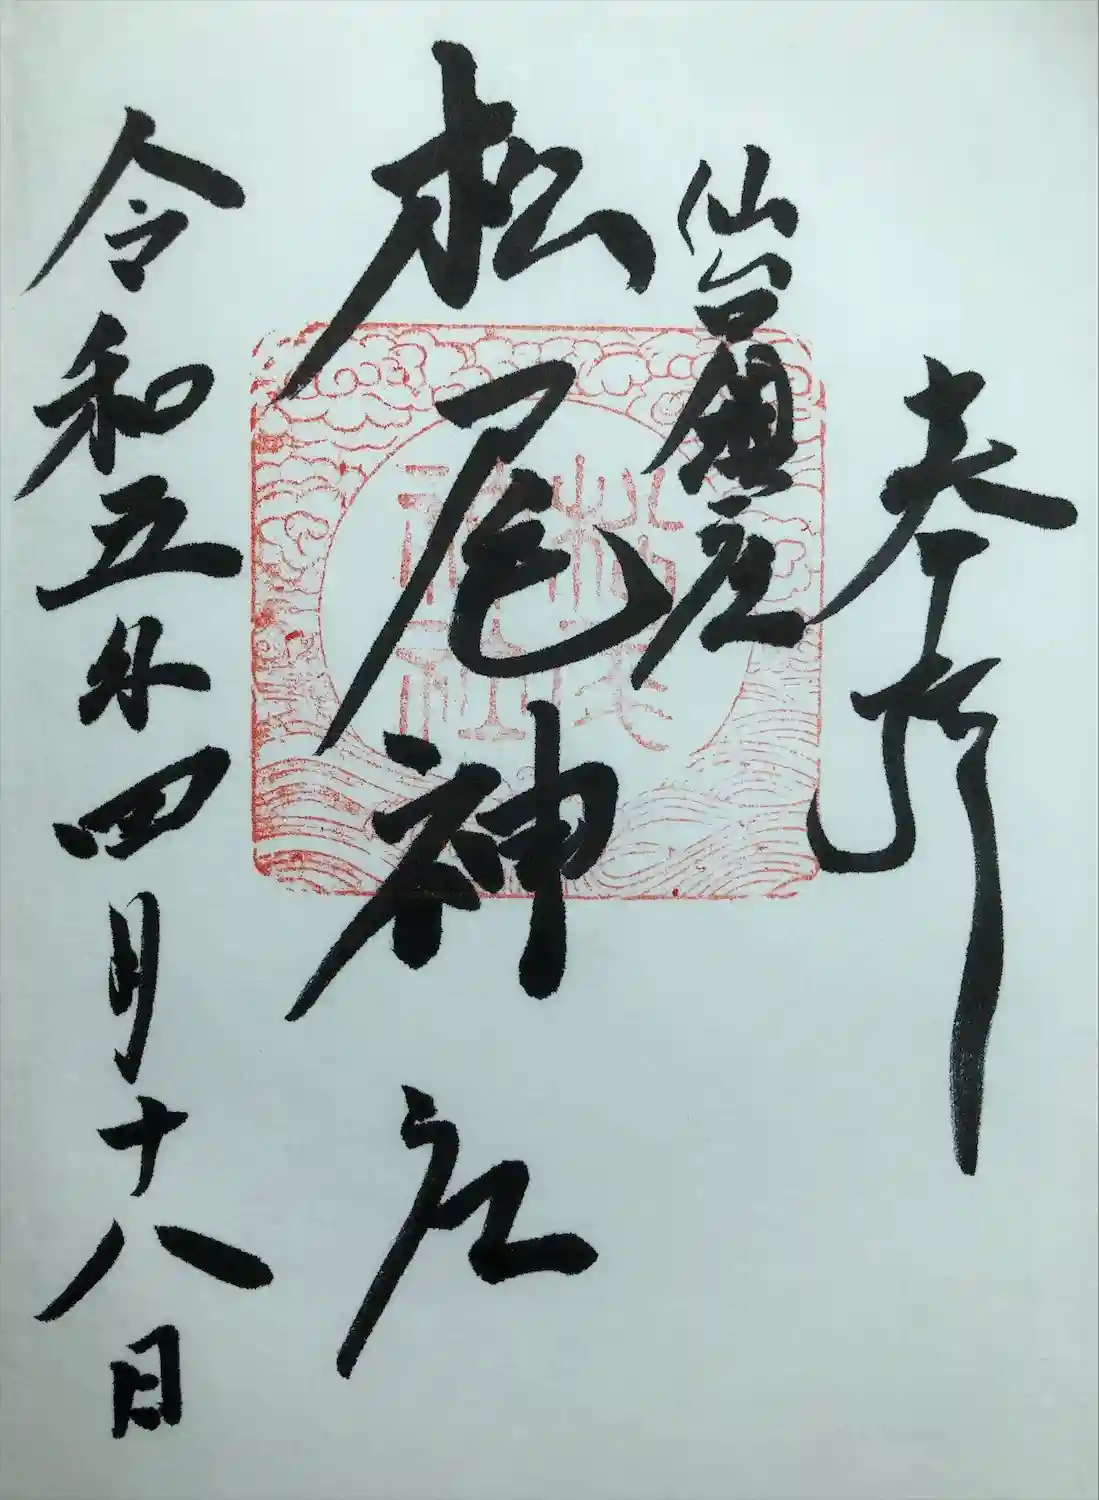 奉拝
仙台鎮座
松尾神社
令和五年四月十八日
松尾
神社